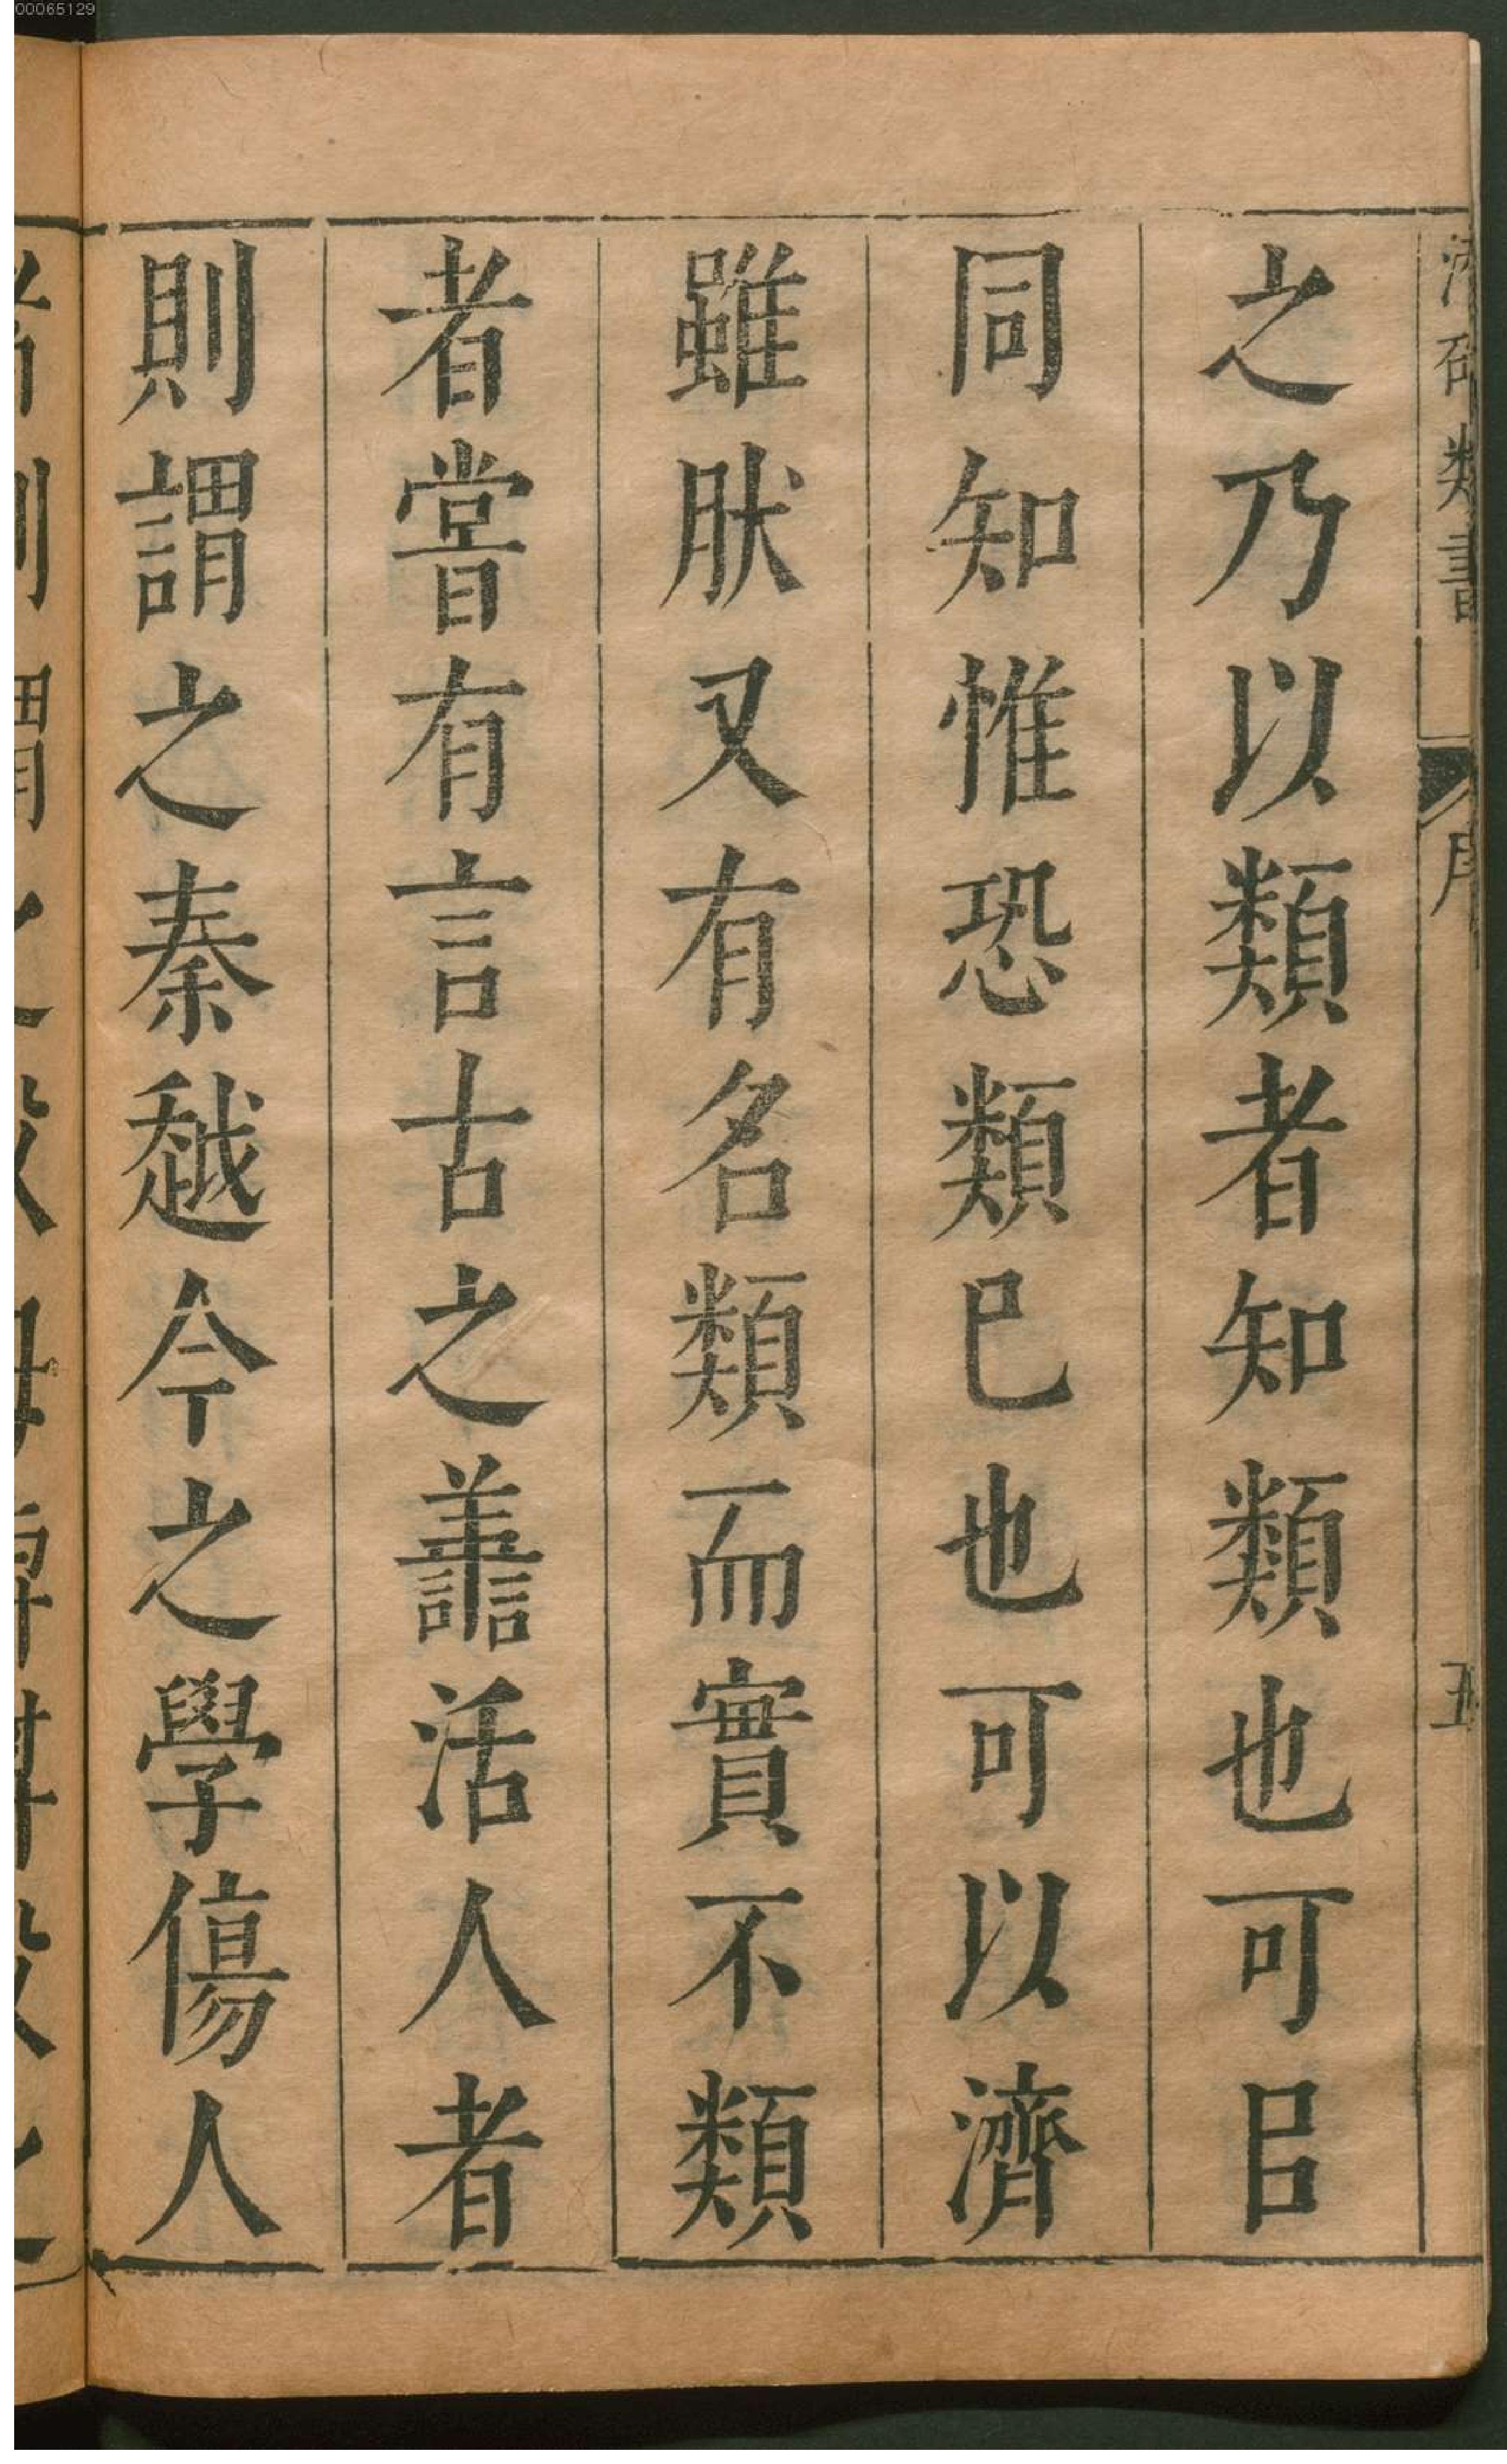 00065129
類書
序
五
之乃以類者知類也可㠯
同知惟恐類已也可以濟
雖肰又有名類而實不類
者甞有言古之譱活人者
則謂之秦越今之學傷人